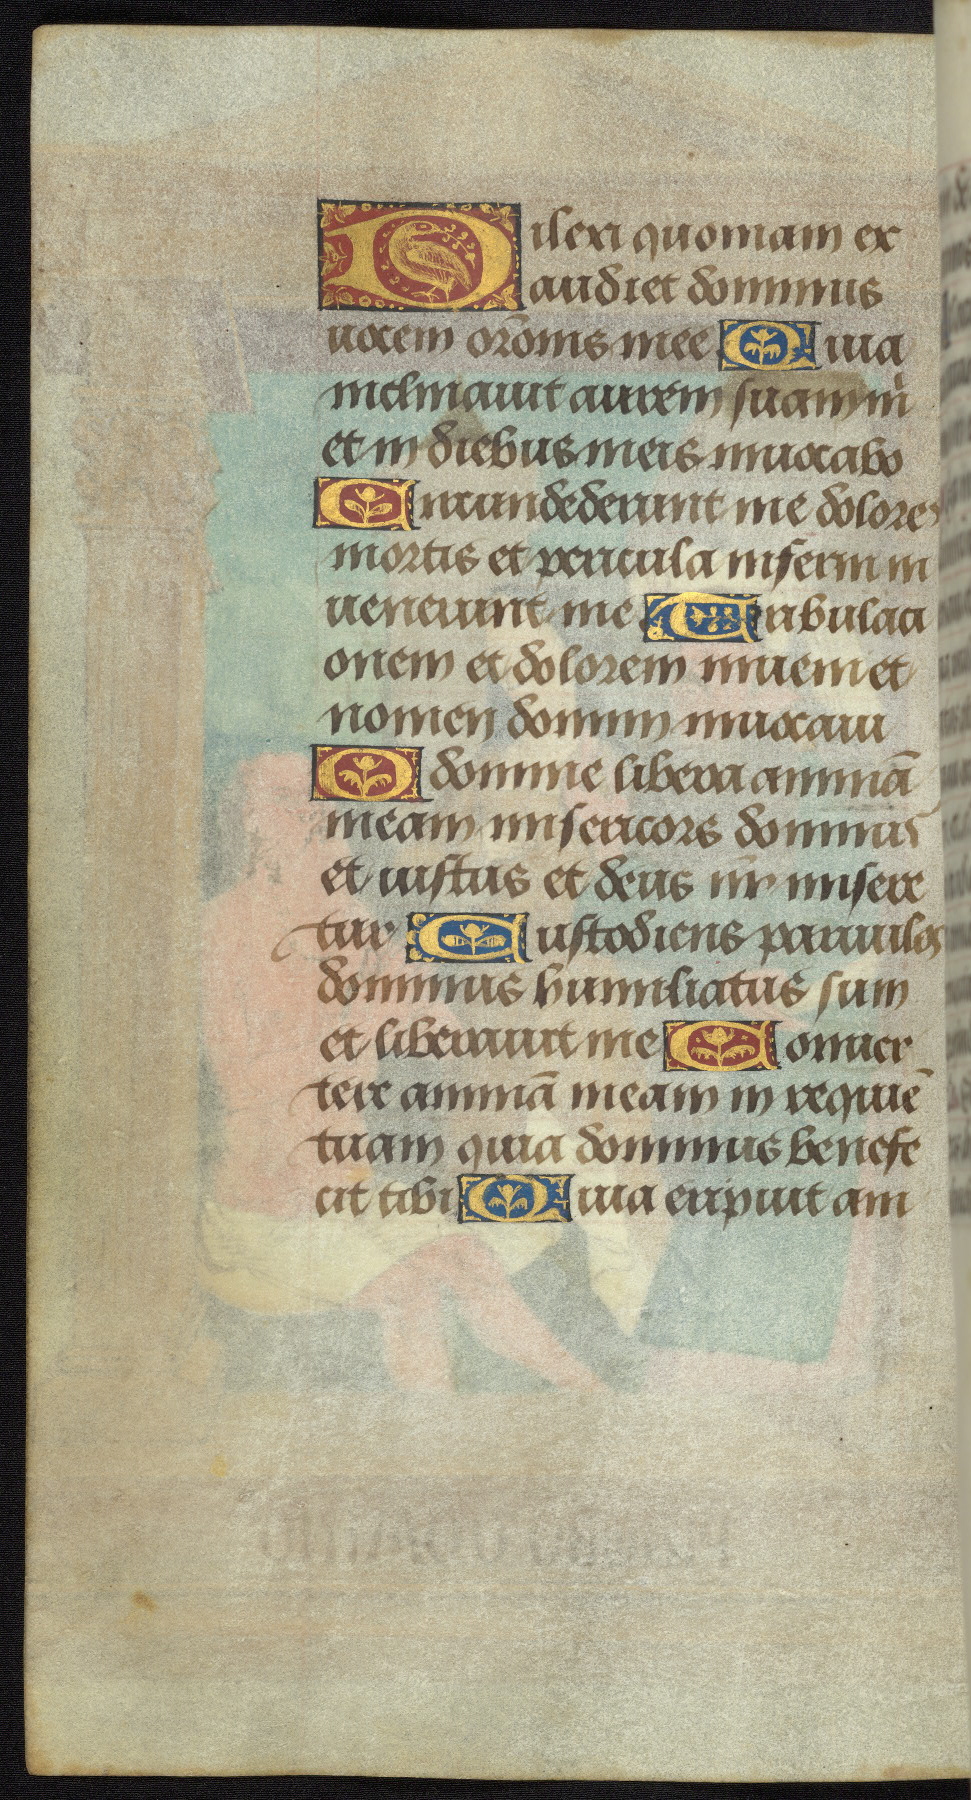 Dilexi quoniam ex
audiet dominus
uocem orōnis mee Quia
inclinauit aurem suam m̄
et in diebus meis inuocabo
Circundederunt me dolores
mortis et pericula inferni in
uenerunt me Tribulaci
onem et dolorem inueni et
nomen domini inuocaui
O domine libera animā
meam misericors dominus
et iustus et deus nr̄ misere
tur Custodiens paruulos
dominus humiliatus sum
et liberauit me Conuer
tere animā meam in requiē
tuam quia dominus benefe
cit tibi Quia eripuit am